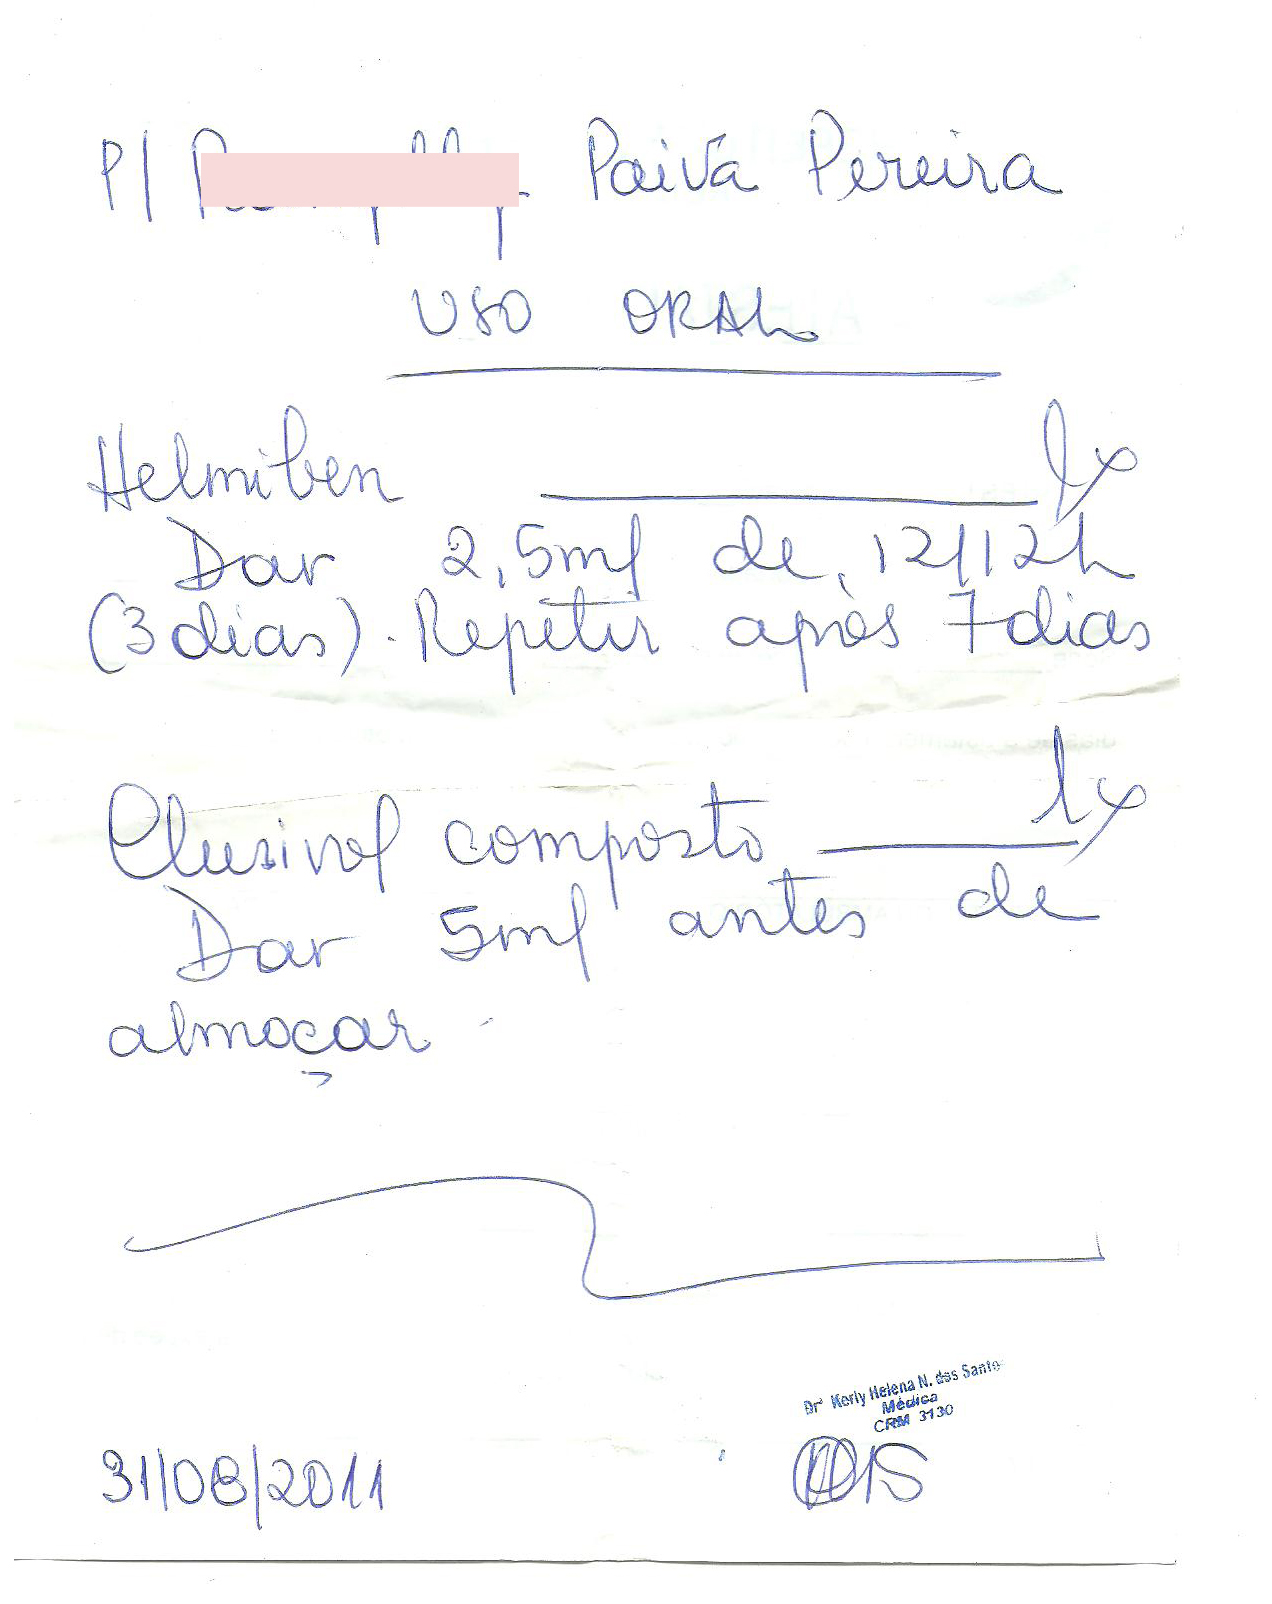 P/ Paiva Pereira
USO ORAL
Helmiben 1x
Dar 2,5ml de 12/12h
(3 dias). Repetir após 7 dias
Clusivol composto 1x
Dar 5ml antes de
almoçar
Drª Kerly Helena N. dos Santo
Médica
CRM 3130
31/08/2011